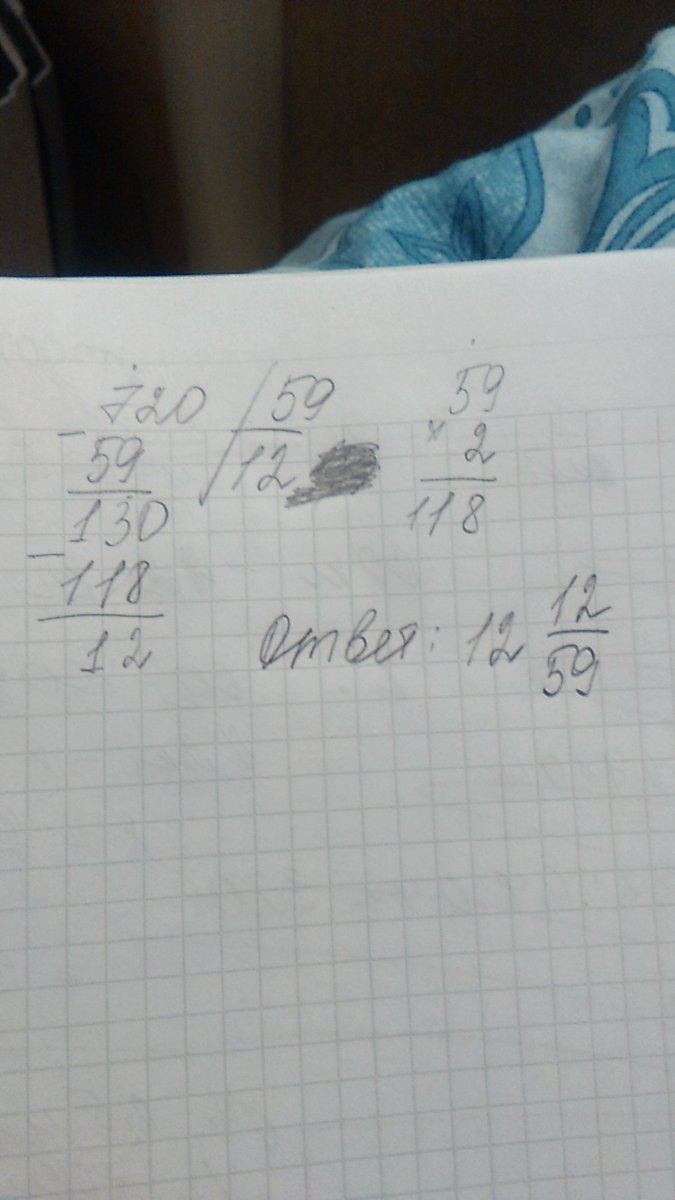 720 59
- 59 12
130
- 118
12
59
× 2
118
Ответ: 12 12/59